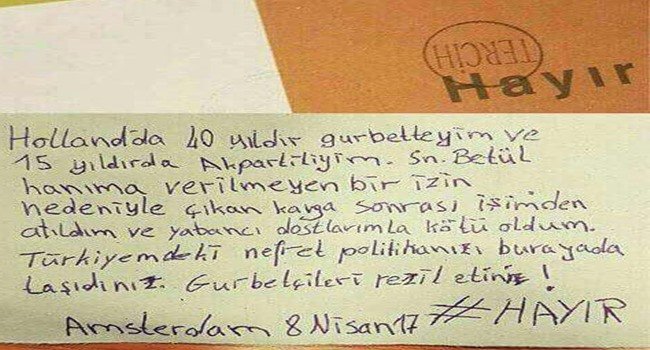 TERCİH
Hayır
Holland'da 40 yıldır gurbetteyim ve
15 yıldırda Akpartiliyim. Sn. Betül
hanıma verilmeyen bir izin
nedeniyle çıkan kavga sonrası işimden
atıldım ve yabancı dostlarımla kötü oldum.
Türkiyemdeki nefret politikanızı burayada
taşıdınız. Gurbetçileri rezil ettiniz!
Amsterdam 8 Nisan 17 #HAYIR